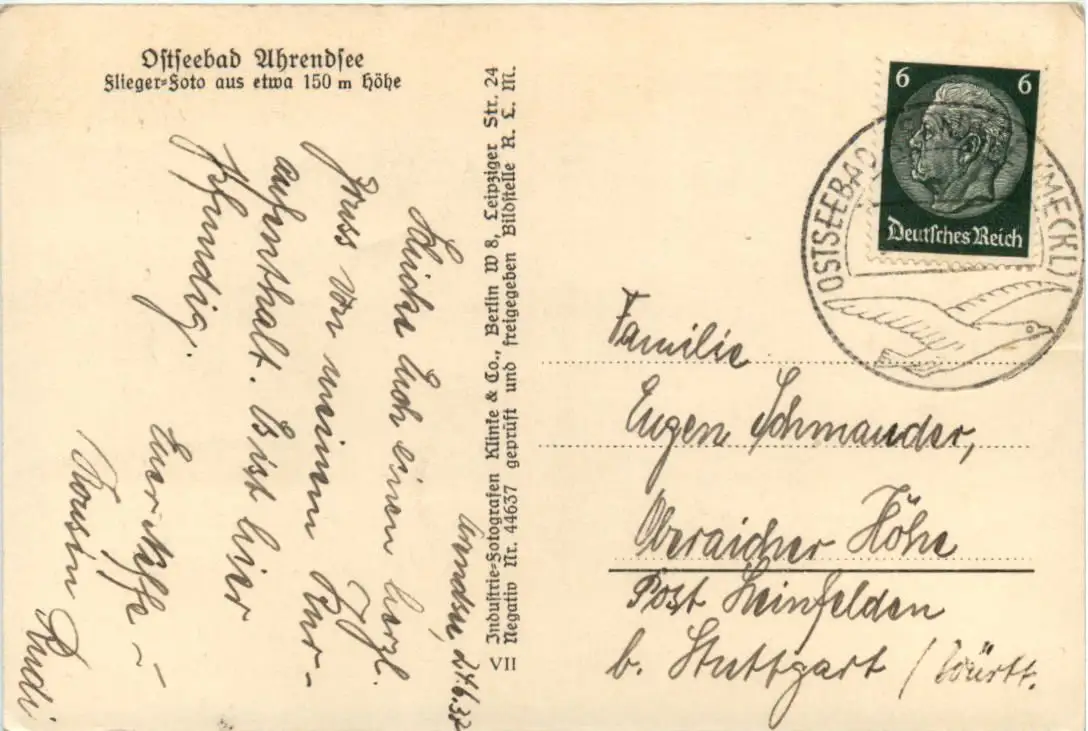 Ostseebad Ahrendsee
Flieger=Foto aus etwa 150 m Höhe
Arendsee, 24.6.37
Schicke Euch einen herzl.
Gruss von meinem Kur-
aufenthalt. Es ist hier
pfundig.
Euer Neffe –
Kousin Rudi
Industrie=Fotografen Klinke & Co., Berlin W 8, Leipziger Str. 24
Negativ Nr. 44637 geprüft und freigegeben Bildstelle R. L. M.
VII
6 6
Deutsches Reich
OSTSEEBAD (MECKL)
Familie
Eugen Schmauder,
Oberaicher Höhe
Post Leinfelden
b. Stuttgart / Württ.